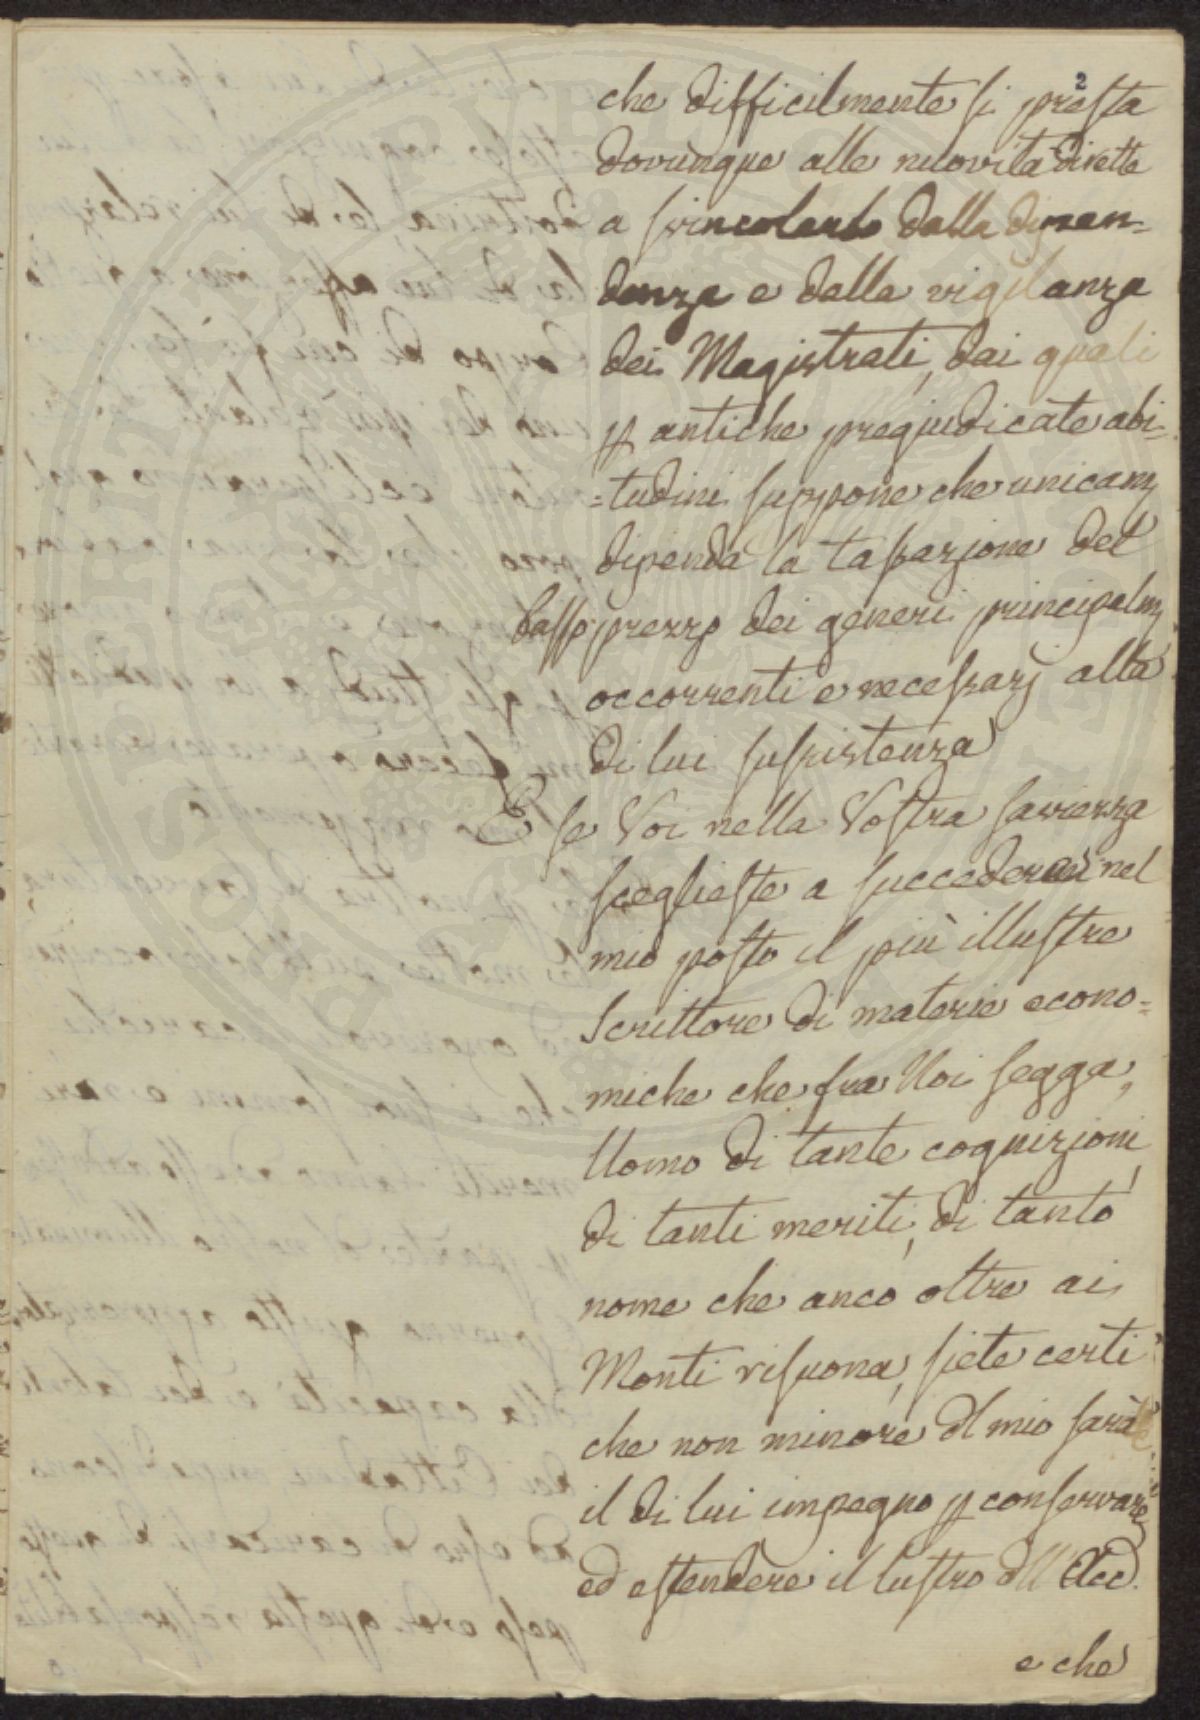 che difficilmente si presta
dovunque alle nuovità dirette
a svincolarlo dalla dipen-
denza e dalla vigilanza
dei Magistrati, dai quali
p antiche pregiudicate abi=
=tudini suppone che unicam
dipenda la tassazione del
basso prezzo dei generi principalm
occorrenti e necessarj alla
di lui sussistenza
E se Voi nella Vostra saviezza
sceglieste a succedermi nel
mio posto il più illustre
Scrittore di materie econo=
miche che fra Noi segga,
Uomo di tante cognizioni,
di tanti meriti, di tanto
nome che anco oltre ai
Monti risuona, siete certi
che non minore dl mio sarà
il di lui impegno p conservare,
ed estendere il lustro dll Accd.
e che